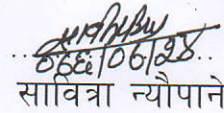 ०६६/०६/२४
सावित्रा न्यौपाने